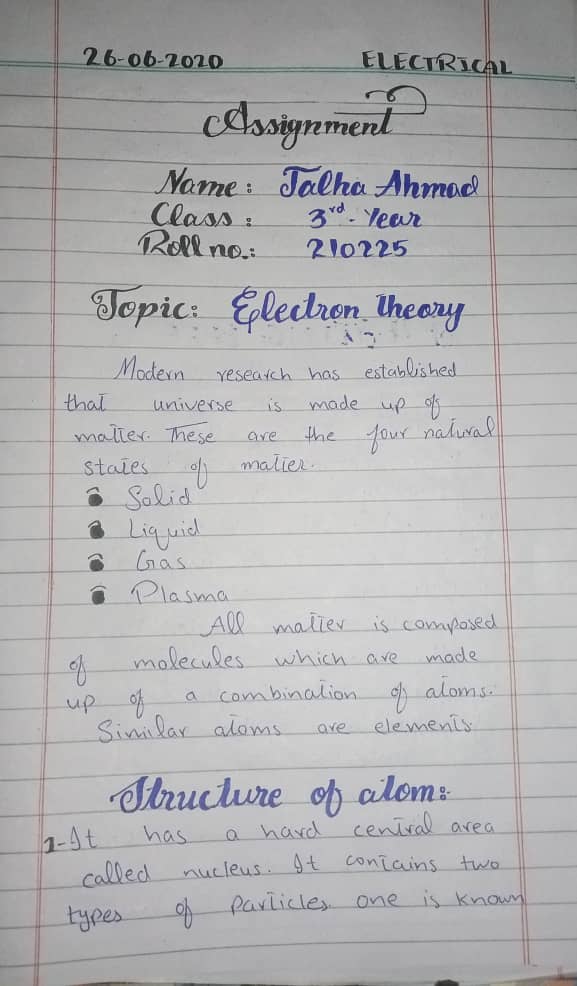 26-06-2020 ELECTRICAL
Assignment
Name: Talha Ahmad
Class: 3rd-Year
Roll no.: 210225
Topic: Electron Theory
Modern research has established
that universe is made up of
matter. These are the four natural
states of matter.
Solid
Liquid
Gas
Plasma
All matter is composed
of molecules which are made
up of a combination of atoms.
Similar atoms are elements
Structure of atom:
1-It has a hard central area
called nucleus. It contains two
types of Particles. one is known